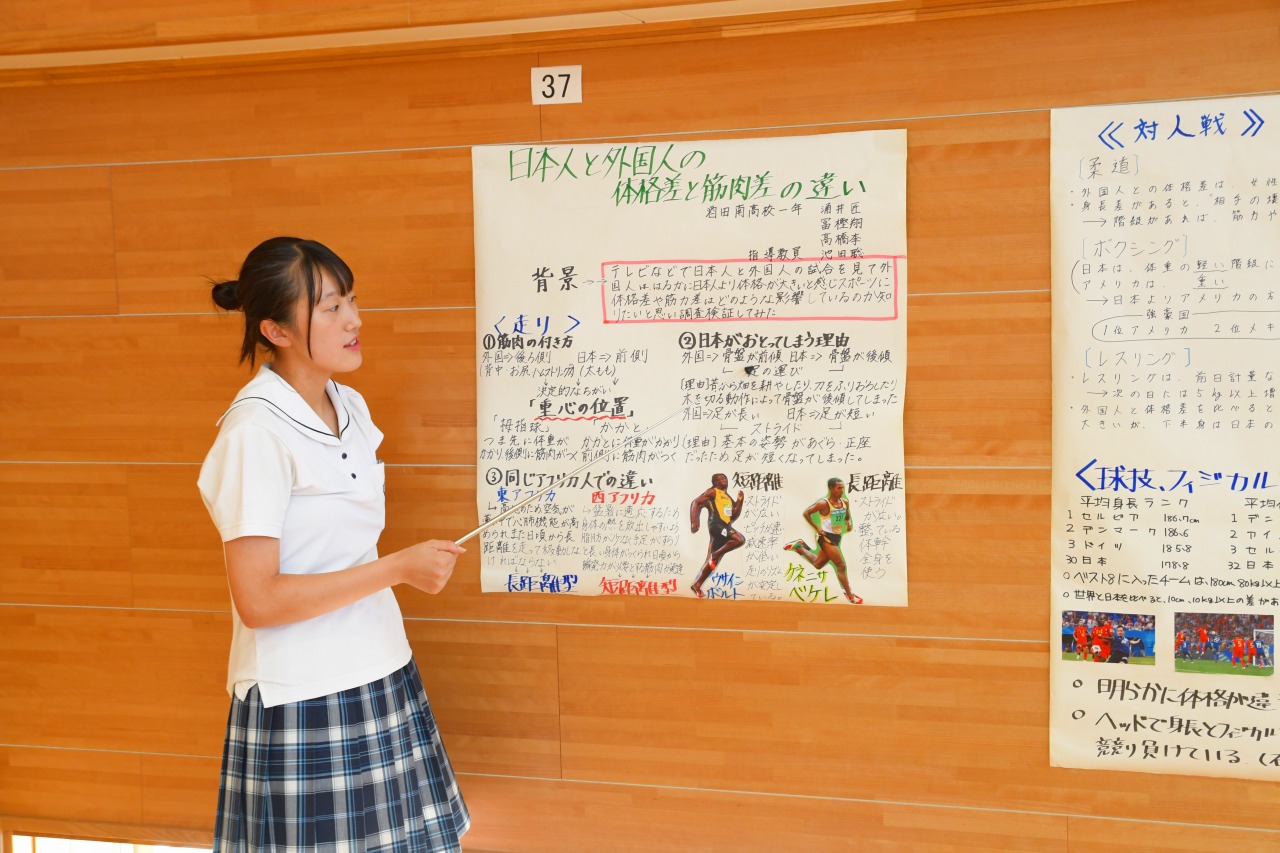 37
日本人と外国人の
体格差と筋肉差の違い
酒田南高校一年 涌井匠
冨樫翔
高橋李
指導教員 池田聡
背景
テレビなどで日本人と外国人の試合を見て外
国人ははるかに日本人より体格が大きいと感じスポーツに
体格差や筋力差はどのような影響しているのか知
りたいと思い調査検証してみた
〈走り〉
①筋肉の付き方
外国⇒後ろ側 日本⇒前側
(背中・お尻・ハムストリングス) (太もも)
決定的なちがい
「重心の位置」
「拇指球」 「かかと」
つま先に体重が かかとに体重がかかり
かかり後側に筋肉がつく 前側に筋肉がつく
②日本がおとってしまう理由
外国⇒骨盤が前傾 日本⇒骨盤が後傾
足の運び
[理由]昔から畑を耕やしたり、刀をふりおろしたり
木を切る動作によって骨盤が後傾してしまった
外国⇒足が長い 日本⇒足が短い
ストライド
[理由]基本の姿勢があぐら・正座
だったため足が短くなってしまった。
③同じアフリカ人での違い
東アフリカ
高地のため空気が
薄くて心肺機能が高
められまた日頃から長
距離を走って移動しな
ければならない
長距離型
西アフリカ
猛暑に適応するため
身体の熱を放出しやすいよう
短距離型
短距離
ストライド
が広い
ピッチが速い
減速率
が低い
走りのリズム
が安定し
ている。
ウサイン
ボルト
長距離
・ストライド
が広い。
整っている
体幹
全身を
使う
ケネニサ
ベケレ
≪対人戦≫
[柔道]
・外国人との体格差は、女性
・身長差があると、"相手の
→階級があれば、筋力や
[ボクシング]
日本は、体重の軽い階級に
アメリカは、重い
→日本よりアメリカの方
強豪国
1位アメリカ 2位メキ
[レスリング]
・レスリングは、前日計量な
→次の日には5kg以上増
・外国人と体格差を比べると
大きいが、下半身は日本の
〈球技、フィジカル
平均身長ランク
1 セルビア 186.7cm
2 デンマーク 186.6
3 ドイツ 185.8
30 日本 178.8
平均体
1 デン
2 アイ
3 セル
32 日本
○ベスト8に入ったチームは、180cm 80kg以上
○世界と日本を比べると、10cm、10kg以上の差があ
○ 明らかに体格が違
○ ヘッドで身長とフィジカル
競り負けている。